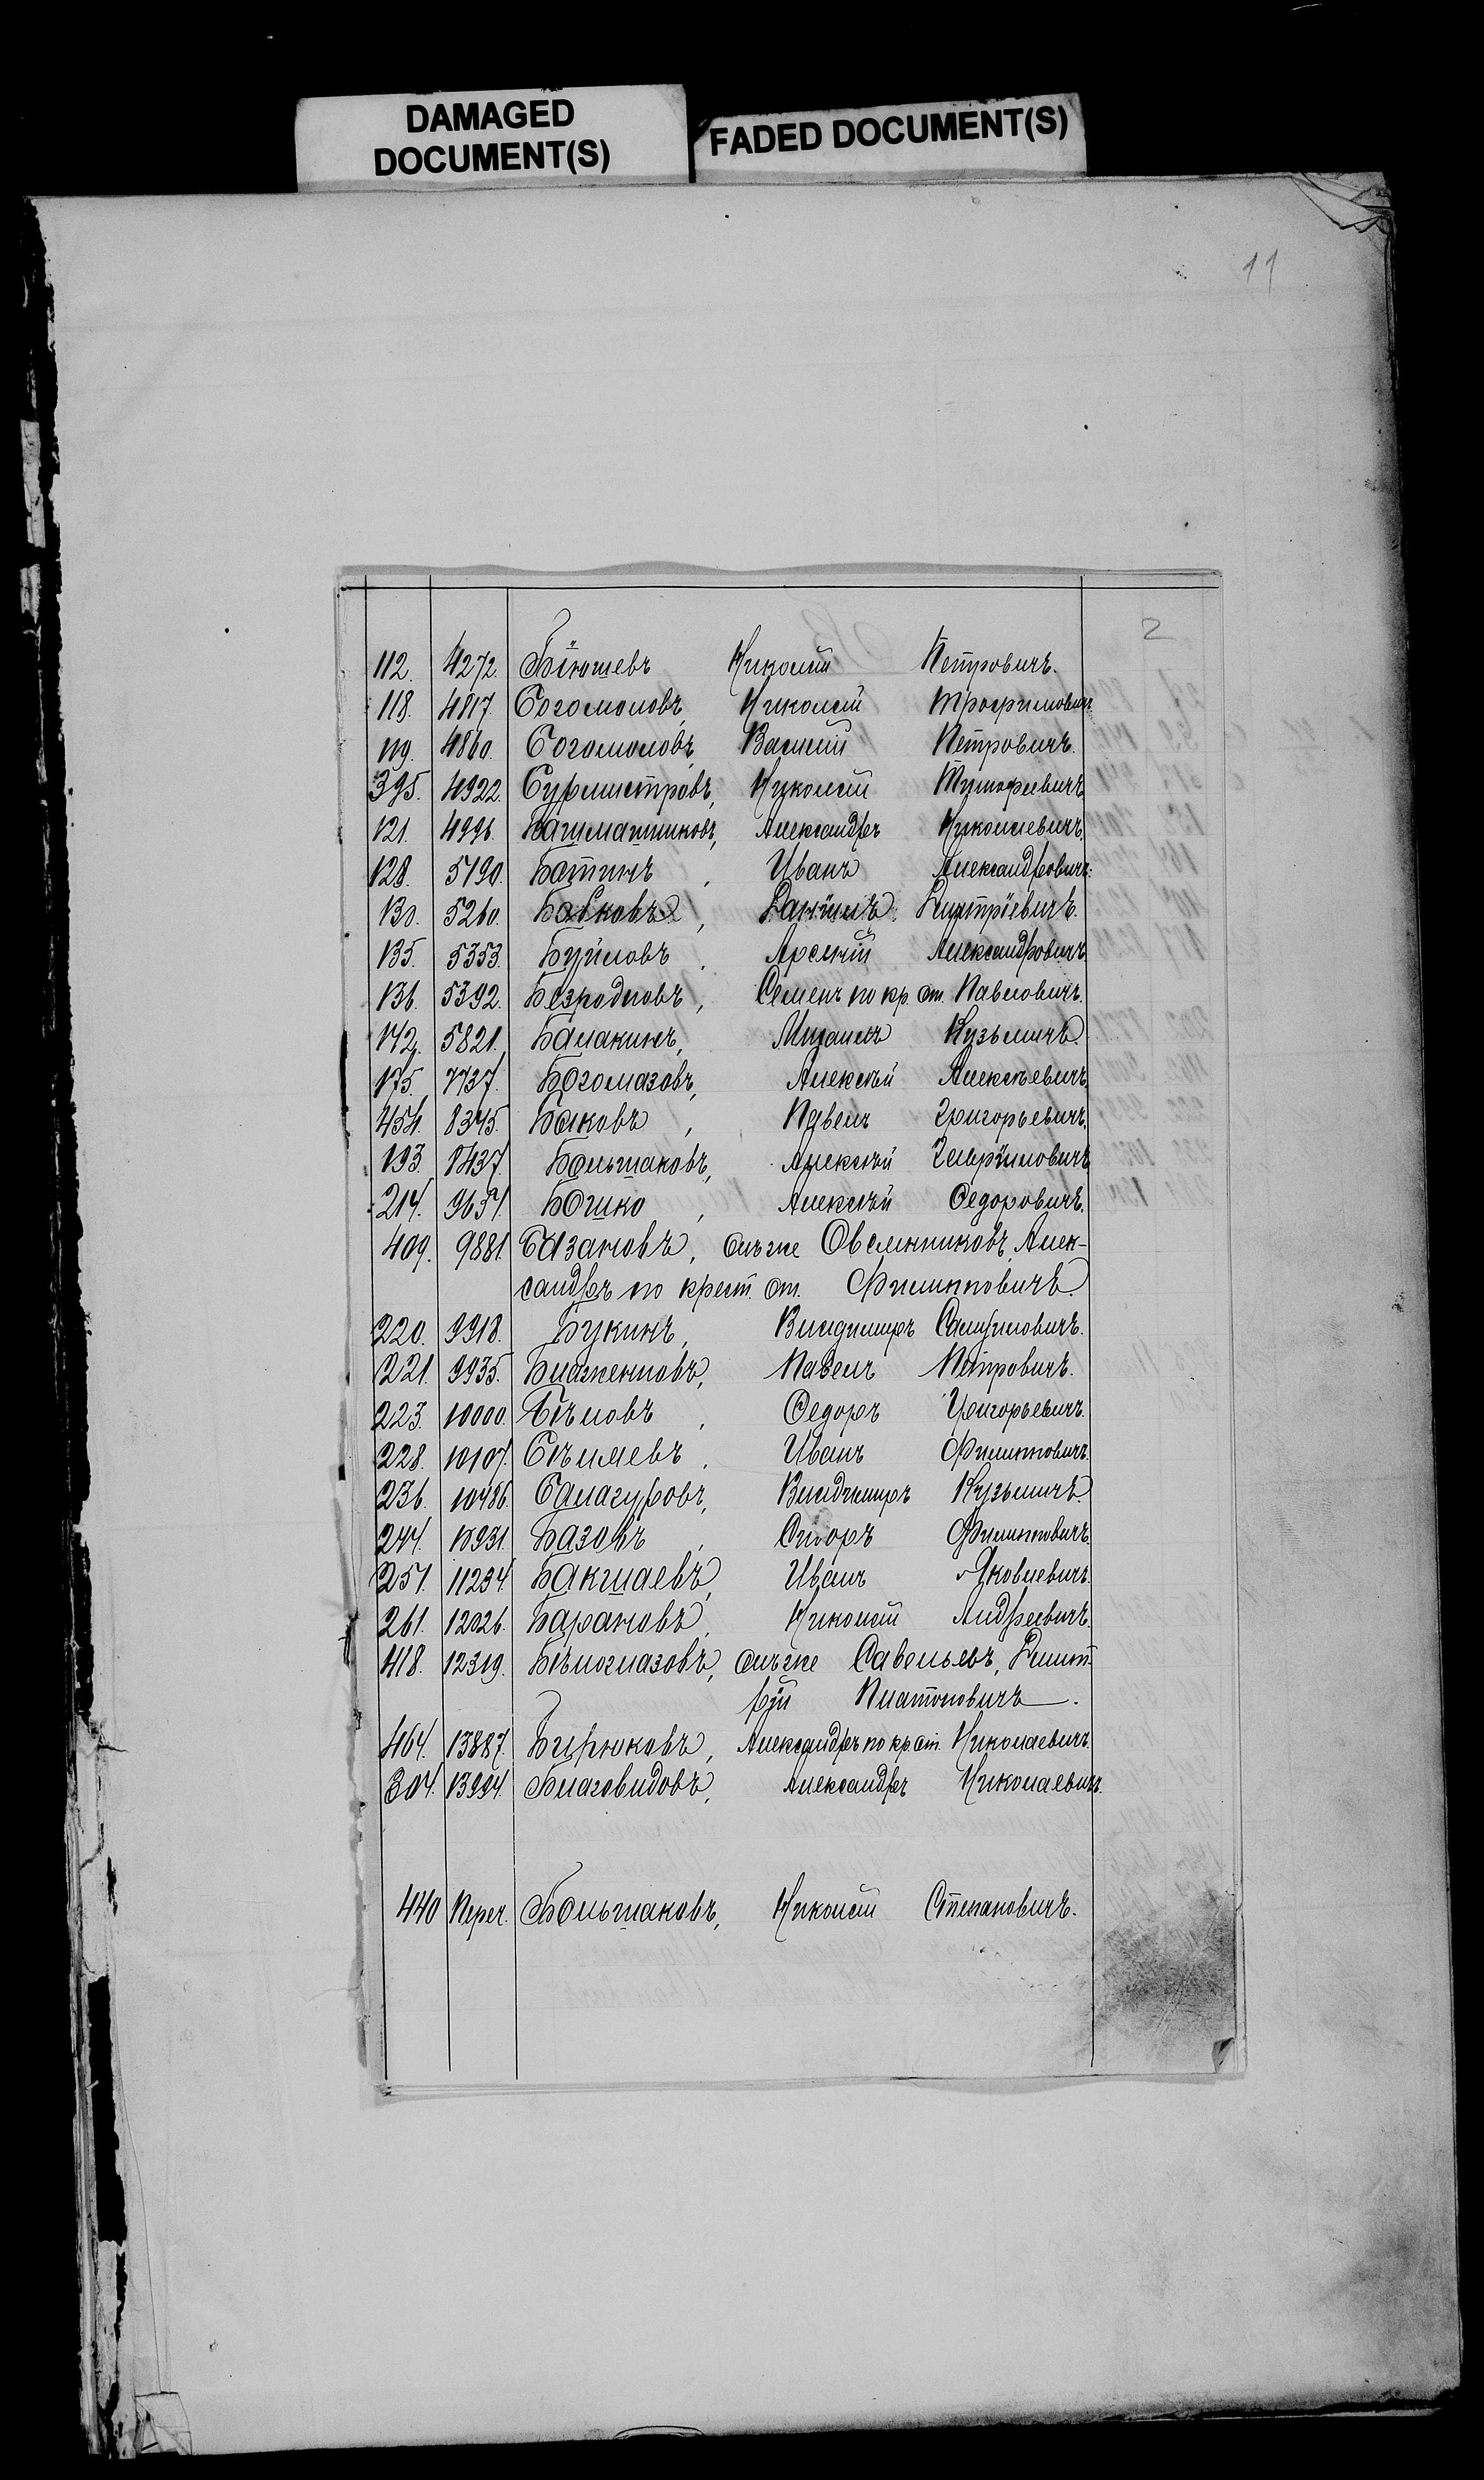 DAMAGED DOCUMENT(S)
FADED DOCUMENT(S)
11
2
112. 4272. Бѣюшевъ Николай Петровичъ.
118. 4817. Богомоловъ, Николай Трофимовичъ
119. 4860. Богомоловъ, Василій Петровичъ.
395. 4922. Бурмистровъ, Николай Тимофеевичъ
121. 4996. Башмашниковъ, Александръ Николаевичъ.
128. 5190. Батинъ, Иванъ Александровичъ.
130. 5260. Бабковъ, Даніилъ Дмитріевичъ.
135. 5353. Буйловъ, Арсеній Александровичъ
136. 5392. Безродновъ, Семенъ по кр. от. Павловичъ.
142. 5821. Балакинъ, Михаилъ Кузьмичъ.
175. 7737. Богомазовъ, Алексѣй Алексѣевичъ.
454. 8345. Баковъ, Павелъ Григорьевичъ.
193. 8437. Большаковъ, Алексѣй Гавріиловичъ
214. 9654. Бошко, Алексѣй Ѳедоровичъ.
409. 9881. Базановъ, онъ же Овсянниковъ, Алек-
сандръ по крест. от. Филипповичъ.
220. 9918. Букинъ, Владимиръ Самуиловичъ.
221. 9935. Блаженновъ, Павелъ Петровичъ.
223. 10000. Бѣловъ, Ѳедоръ Григорьевичъ.
228. 10107. Бѣляевъ, Иванъ Филипповичъ.
236. 10486. Балагуровъ, Владимиръ Кузьмичъ.
244. 10931. Базовъ, Филипповичъ.
251. 11234. Бакшаевъ, Иванъ Яковлевичъ.
261. 12026. Барановъ, Николай Андреевичъ.
418. 12319. Бѣлоглазовъ, онъ же Савельевъ, Дмит-
рій Платоновичъ.
464. 13887. Бирюковъ, Александръ по кр. от. Николаевичъ.
304. 13994. Благовидовъ, Александръ Николаевичъ.
440 Переч. Большаковъ, Николай Степановичъ.